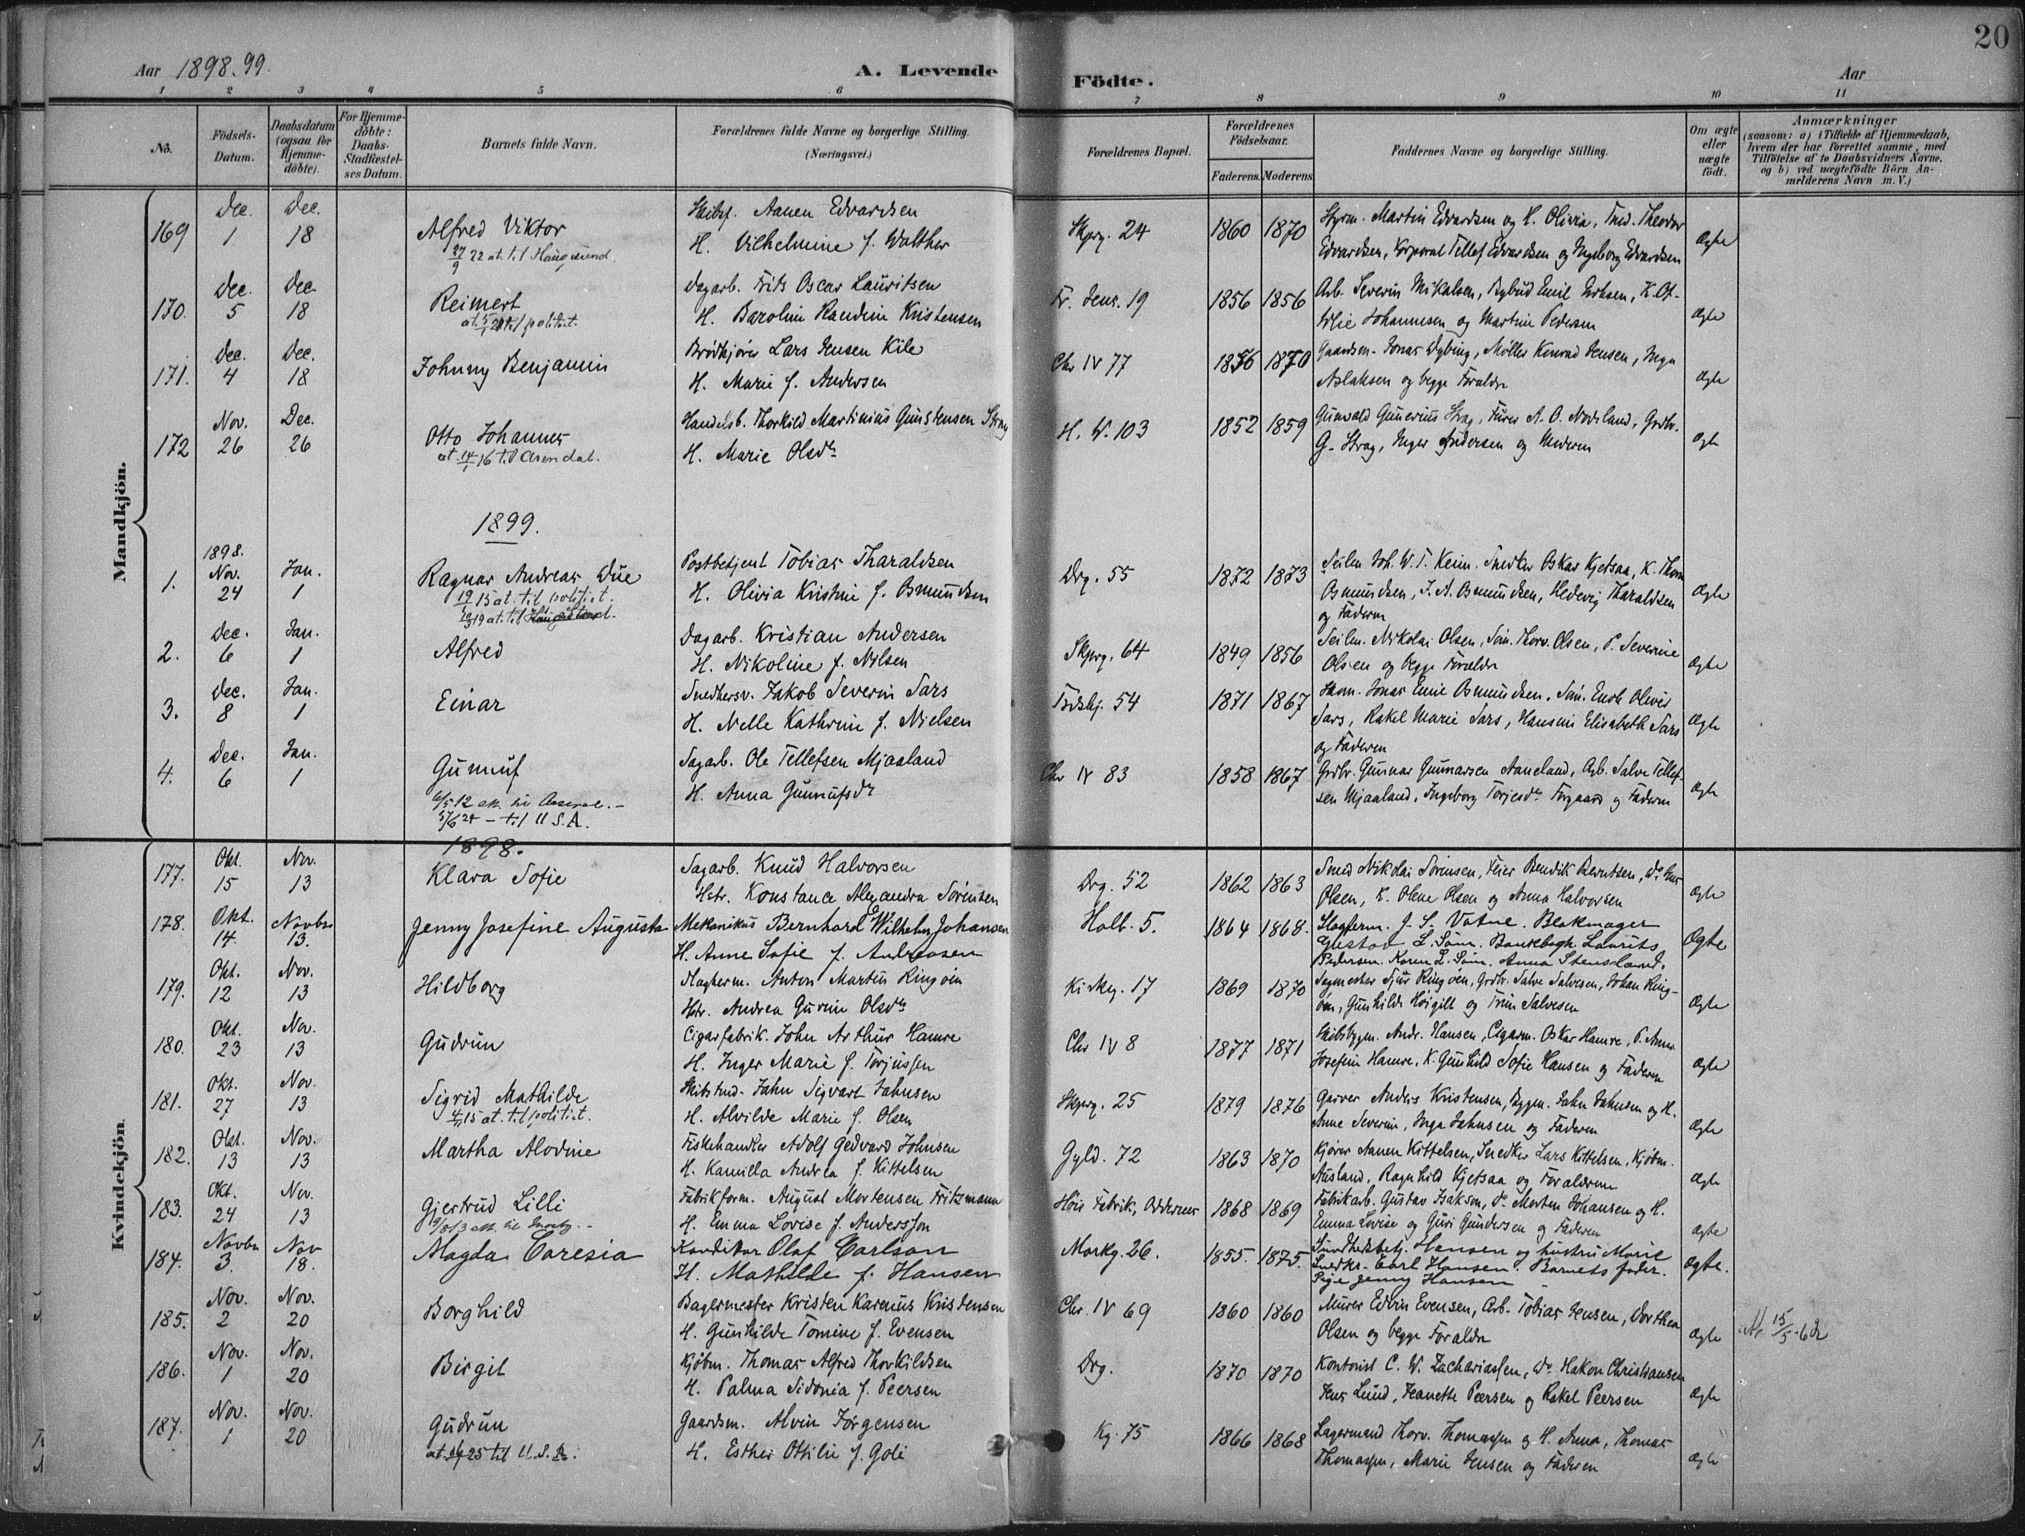 20
Aar 1898.99.
A. Levende Födte.
Aar
1 2 3 4 5 6 7 8 9 10 11
No.
Födsels-Datum.
Daabsdatum (ogsaa for Hjemme-döbte).
For Hjemme-döbte: Daabs-Stadfæstel-ses Datum.
Barnets fulde Navn.
Forældrenes fulde Navne og borgerlige Stilling. (Næringsvei.)
Forældrenes Bopæl.
Forældrenes Födselsaar.
Faderens. Moderens
Faddernes Navne og borgerlige Stilling.
Om ægte eller uægte födt.
Anmærkninger
(saasom: a) i Tilfælde af Hjemmedaab, hvem der har forrettet samme, med Tilföielse af to Daabsvidners Navne, og b) ved uægtefödte Börn An-melderens Navn m. V.)
Mandkjön.
169 Dec. 1 Dec. 18 Alfred Viktor
27/9 22 at. til Haugesund.
Skibsf. Aanen Edvardsen
H. Vilhelmine f. Walther
Skprg. 24 1860 1870
Styrm. Martin Edvardsen og H. Olivia, Frid. Theodor
Edvardsen, Korporal Tellef Edvardsen og Ingeborg Edvardsen
Ægte
170. Dec. 5 Dec. 18 Reimert
Dagarb. Frits Oscar Lauritsen
H. Baroline Randine Kristensen
Fr. Jens. 19 1856 1856
Arb. Severin Mikalsen, Bybud Emil
Johannesen og Martine Pedersen
Ægte
171. Dec. 4 Dec. 18 Johnny Benjamin
Brödkjörer Lars Jensen Kile
H. Marie f. Andersen
Chr IV 77 1876 1870
Gaardsm. Jonas Dybing, Møller Konrad Jensen, Inga
Aslaksen og begge Forældre
Ægte
172 Nov. 26 Dec. 26 Otto Johannes
at. 14/1 16 til Arendal.
Handelsb. Thorkild Martinius Gunstensen Stray
H. Marie Olsdr
H. W. 103 1852 1859
Gunvald Gunerius Stray, Furer A. O. Nodeland, Grdbr.
G. Stray, Inger Andersen og Moderen
Ægte
1899.
1. 1898. Nov. 24 Jan. 1 Ragnar Andreas Due
19 15 at. til politiet.
Postbetjent Tobias Tharaldsen
H. Olivia Kristine f. Osmundsen
Drg. 55 1872 1873
Seilm. Joh. W. T. Keim. Snedker Oskar Kjetsaa, K. Thom
Osmundsen, J. A. Osmundsen, Hedevig Tharaldsen
og Faderen
Ægte
2. Dec. 6 Jan. 1 Alfred
Dagarb. Kristian Andersen
H. Nikoline f. Nilsen
Skprg. 64 1849 1856
Seilm. Nikolai Olsen, Søm. Thorv. Olsen, P. Severine
Olsen og begge Forældre
Ægte
3. Dec. 8 Jan. 1 Einar
Snedkersv. Jakob Severin Sars
H. Nelle Kathrine f. Nielsen
Tordskj. 54 1871 1867
Skom. Jonas Emil Osmundsen, Søm. Enok Oliver
Sars, Rakel Marie Sars, Hansine Elisabeth Sars
og Faderen
Ægte
4. Dec. 6 Jan. 1 Gunnuf
24 - til U.S.A.
Sagarb. Ole Tellefsen Mjaaland
H. Anna Gunnufsdr
Chr IV 83 1858 1867
Grdbr. Gunnar Gunnarsen Aaneland, Arb. Salve Tellef-
sen Mjaaland, Ingeborg Torjesdr Forgaard og Faderen
Ægte
Kvindekjön.
1898.
177. Okt. 15 Nov. 13 Klara Sofie
Sagarb. Knud Halvorsen
Hstr. Konstance Alexandra Sörensen
Drg. 52 1862 1863
Smed Nikolai Sörensen, Feier Bendik Berntsen,
Olsen, K. Olene Olsen og Anna Halvorsen
Ægte
178. Okt. 14. Novbr 13. Jenny Josefine Augusta
Mekanikus Bernhard Wilhelm Johansen
H. Anne Sofie f. Andreasen
Holb. 5. 1864 1868.
Slagterm. J. S. Vatne. Blokmager
Gustav L. Söm. Bankebogh. Laurits
Pedersen. Karen L. Söm. Anna Stensland.
Ægte
179. Okt. 12 Nov. 13 Hildborg
Slagterm. Anton Martin Ringöen
Hstr. Andrea Gurine Olsdr
Kirkeg. 17 1869 1870
Sagmester Sjur Ringöen, Grdbr. Salve Salvesen, Johan Ring-
öen, Gunhilde Höigilt og Trine Salvesen
Ægte
180. Okt. 23 Nov. 13 Gudrun
Cigarfabrik. John Arthur Hamre
H. Inger Marie f. Torjussen
Chr IV 8 1877 1871
Skibsbygm. Andr. Hansen, Cigarm. Oskar Hamre, P. Anna
Josefine Hamre, K. Gunhild Sofie Hansen og Faderen
Ægte
181. Okt. 27 Nov. 13 Sigrid Mathilde
15 at. til politiet.
Skibstmd. Jahn Sigvart Jahnsen
H. Alvilde Marie f. Olsen
Skprg. 25 1879 1876
Garver Anders Kristensen, Bygm. Jahn Jahnsen og H.
Anne Severine, Inga Jahnsen og Faderen
Ægte
182. Okt. 13 Nov. 13 Martha Alodine
Fiskehandler Adolf Gedvard Johnsen
H. Kamilla Andrea f. Kittelsen
Gyld. 72 1863 1870
Kjörer Aanen Kittelsen, Snedker Lars Kittelsen, Kjöbm.
Ausland, Ragnhild Kjetsaa og Forældrene
Ægte
183. Okt. 24 Nov. 13 Gjertrud Lilli
Fabrikform. August Mortensen Fritzmann
H. Emma Lovise f. Andersson
Höie Fabrik, Oddernes 1868 1869
Fabrikarb. Gustav Isakson, do Morten Johansen og H.
Emma Lovise og Guri Gundersen og Faderen
Ægte
184. Novbr 3. Nov 18. Magda Caresia
Konditor Olaf Carlson
H. Mathilde f. Hansen
Markg. 26. 1855. 1875.
Sundhedsbetj. Hansen og hustru Marie
Snedkr. Carl Hansen. Barnets fader.
Pige Jenny Hansen
Ægte.
185. Nov. 2 Nov. 20 Borghild
Bagermester Kristen Karenius Kristensen
H. Gunhilde Tomine f. Evensen
Chr. IV 69 1860 1860
Murer Edvin Evensen, Arb. Tobias Jensen, Dorthea
Olsen og begge Forældre
Ægte
15/5
186. Nov. 1 Nov. 20 Birgit
Kjöbm. Thomas Alfred Thorkildsen
H. Palma Sidonia f. Peersen
Drg. 1870 1870
Kontorist C. W. Zachariassen, do Hakon Christiansen
Jens Lund, Jeanette Peersen og Rakel Peersen
Ægte
187. Nov. 1 Nov. 20 Gudrun
25 til U.S.A.
Gaardsm. Alvin Jörgensen
H. Esther Ottilie f. Goli
Kg. 75 1866 1868
Lagermand Thorv. Thomassen og H. Anna, Thomas
Thomassen, Marie Jensen og Faderen
Ægte